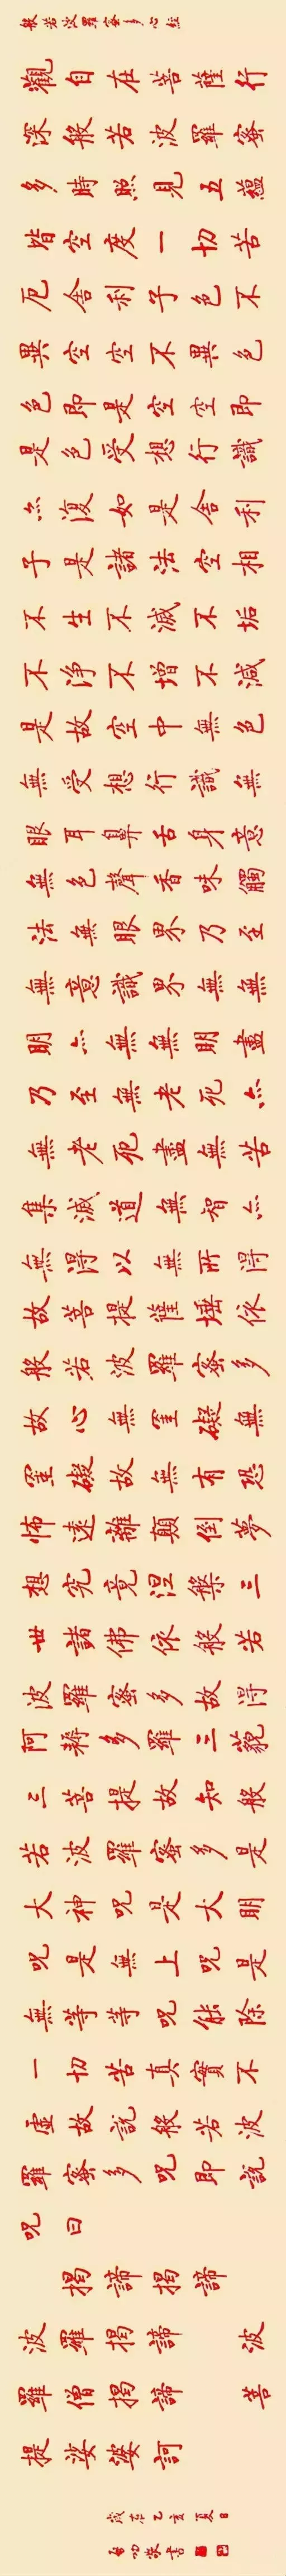 般若波羅蜜多心經
觀自在菩薩行
深般若波羅蜜
多時照見五蘊
皆空度一切苦
厄舍利子色不
異空空不異色
色即是空空即
是色受想行識
亦復如是舍利
子是諸法空相
不生不滅不垢
不淨不增不減
是故空中無色
無受想行識無
眼耳鼻舌身意
無色聲香味觸
法無眼界乃至
無意識界無無
明亦無無明盡
乃至無老死亦
無老死盡無苦
集滅道無智亦
無得以無所得
故菩提薩埵依
般若波羅蜜多
故心無罣礙無
罣礙故無有恐
怖遠離顛倒夢
想究竟涅槃三
世諸佛依般若
波羅蜜多故得
阿耨多羅三藐
三菩提故知般
若波羅蜜多是
大神咒是大明
咒是無上咒是
無等等咒能除
一切苦真實不
虛故說般若波
羅蜜多咒即說
咒曰
揭諦揭諦
波羅揭諦 波
羅僧揭諦 菩
提娑婆訶
歲在乙亥夏日
啟功敬書